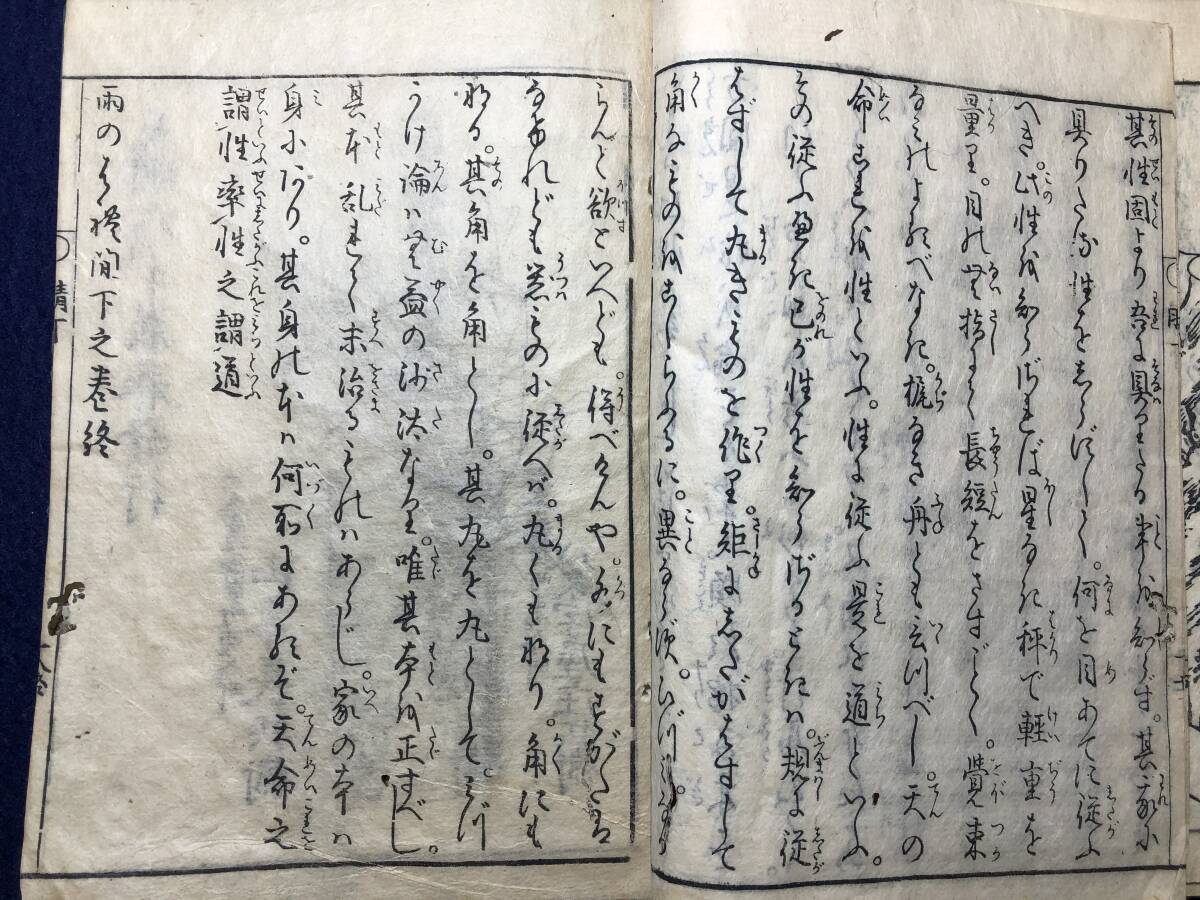 其性固より吾に具りたる事を知らず。其吾に
具りたる性をしらずして。何を目あてに従ふ
べき。此性を知らざれば星なき秤で軽重を
量り。目の無指にて長短をさすごとく。覚束
なきのよるべなき。梶なき舟とも云つべし。天の
命これを性といふ。性に従ふ是を道といふ。
その従ふべき己が性を知らざるときは。規に従
はずして丸きものを作り。矩にしたがはずして
角なものをこしらゆるに。異ならず。ひづみなか
らんと欲といへども。得べけんや。水にもすがたは
なけれども器ものに従へば。丸くもなり。角にも
なる。其角を角とし。其丸を丸として。みづ
うけ論は無益の沙汰なり。唯其本を正すべし。
其本乱れて末治るものはあらじ。家の本は
身にあり。其身の本は何所にあるぞ。天命之
謂性率性之謂道
雨のはれ間下之巻終
晴下